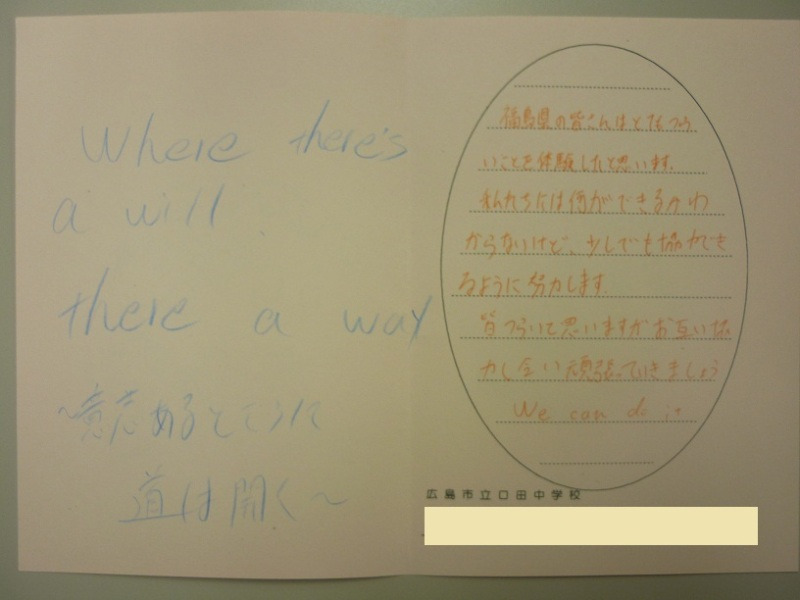 Where there's
a will
there a way
〜意志あるところに
道は開く〜
福島県の皆さんはとてもつら
いことを体験したと思います。
私たちには何ができるかわ
からないけど、少しでも協力でき
るように努力します。
皆つらいと思いますがお互い協
力し合い頑張っていきましょう
We can do it
広島市立口田中学校